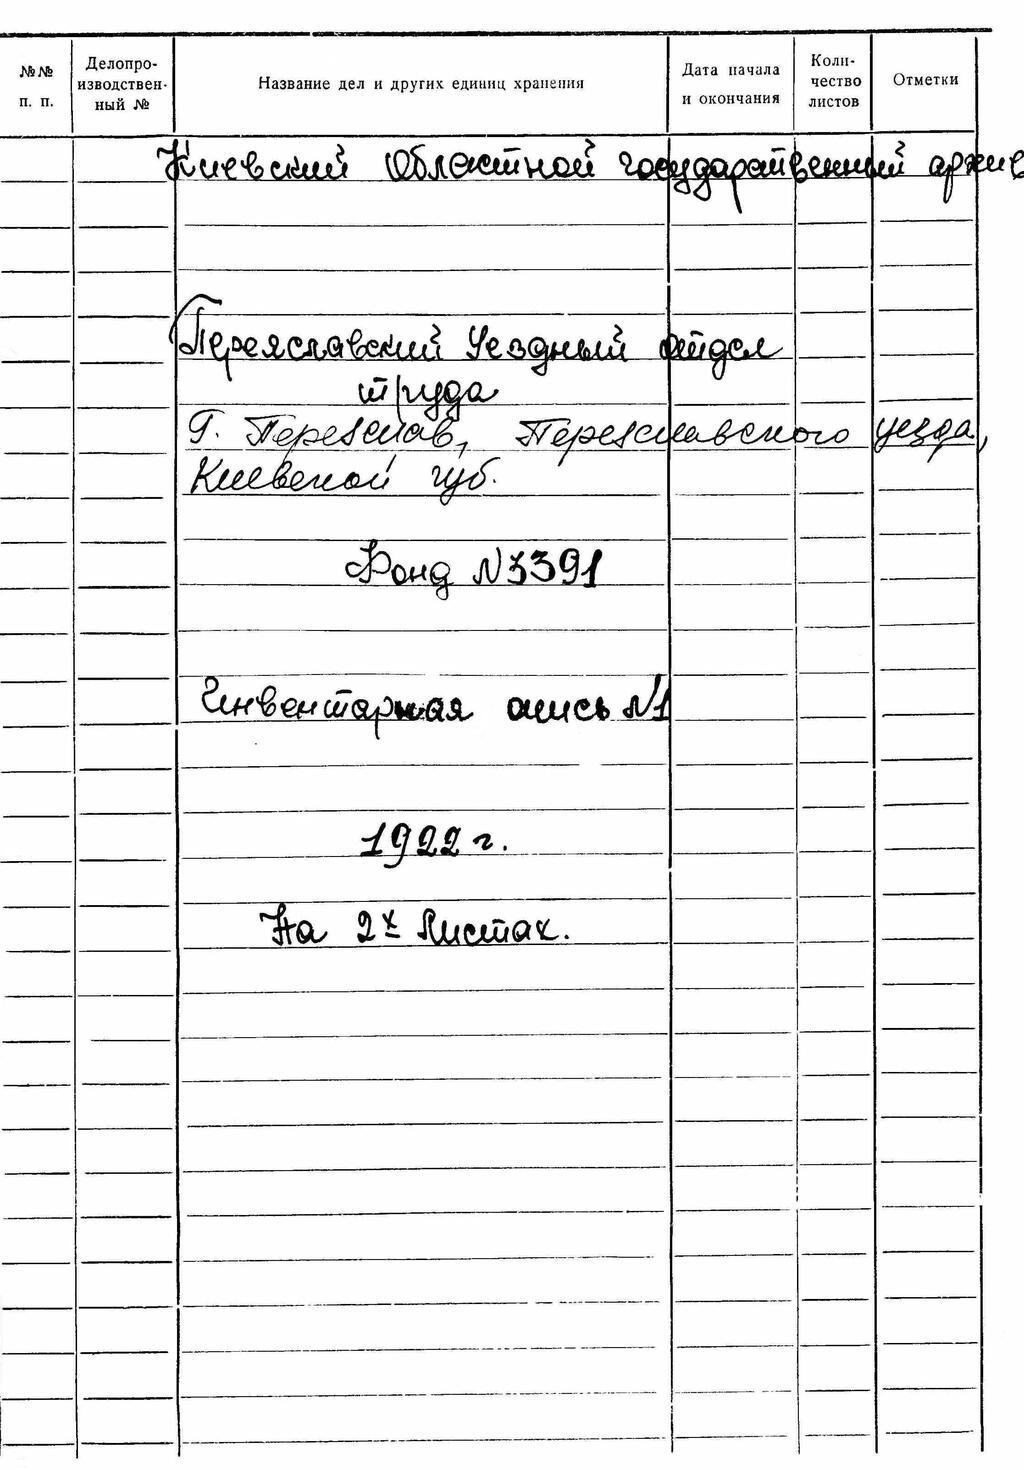 №№ п. п.
Делопро-
изводствен-
ный №
Название дел и других единиц хранения
Дата начала
и окончания
Коли-
чество
листов
Отметки
Киевский Областной государственный архив
Переяславский Уездный отдел
труда
Г. Переяслав, Переяславского уезда,
Киевской губ.
Фонд №3391
Инвентарная опись №1
1922 г.
На 2х Листах.